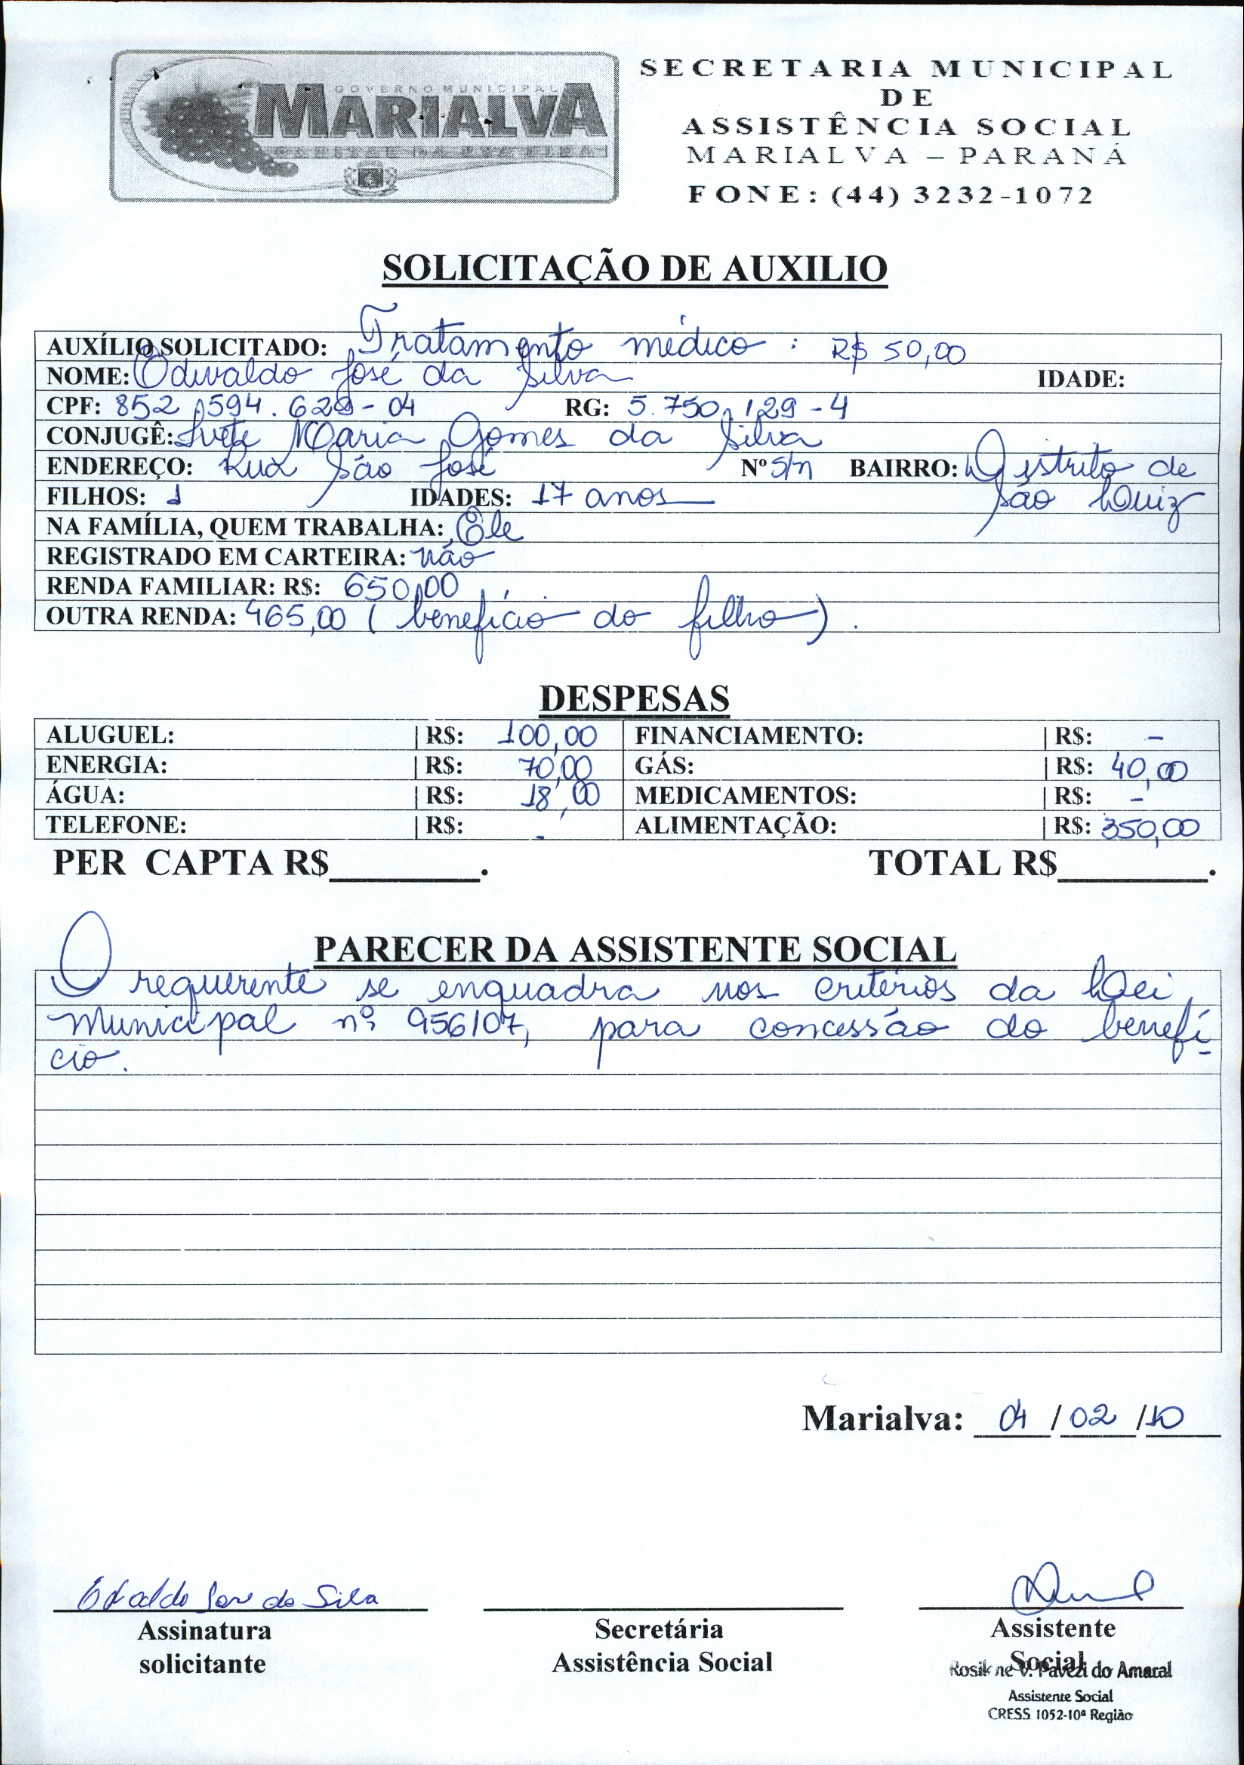 GOVERNO MUNICIPAL
MARIALVA
CAPITAL DA UVA FINA
SECRETARIA MUNICIPAL
DE
ASSISTÊNCIA SOCIAL
MARIALVA – PARANÁ
FONE: (44) 3232-1072
SOLICITAÇÃO DE AUXILIO
AUXÍLIO SOLICITADO: Tratamento médico : R$ 50,00
NOME: Odivaldo José da Silva IDADE:
CPF: 852.594.629-04 RG: 5.750.129-4
CONJUGÊ: Ivete Maria Gomes da Silva
ENDEREÇO: Rua São José Nº S/n BAIRRO: Distrito de
FILHOS: 1 IDADES: 17 anos São Luiz
NA FAMÍLIA, QUEM TRABALHA: Ele
REGISTRADO EM CARTEIRA: não
RENDA FAMILIAR: R$: 650,00
OUTRA RENDA: 465,00 ( benefício do filho) .
DESPESAS
ALUGUEL: | R$: 100,00 FINANCIAMENTO: | R$: -
ENERGIA: | R$: 70,00 GÁS: | R$: 40,00
ÁGUA: | R$: 18,00 MEDICAMENTOS: | R$: -
TELEFONE: | R$: - ALIMENTAÇÃO: | R$: 350,00
PER CAPTA R$________. TOTAL R$________.
PARECER DA ASSISTENTE SOCIAL
O requerente se enquadra nos critérios da Lei
Municipal nº 956/07, para concessão do benefí-
cio.
Marialva: 04 / 02 / 10
José da Silva
Assinatura Secretária Assistente
solicitante Assistência Social Social
V. Pavezi do Amaral
Assistente Social
CRESS 1052-10ª Região